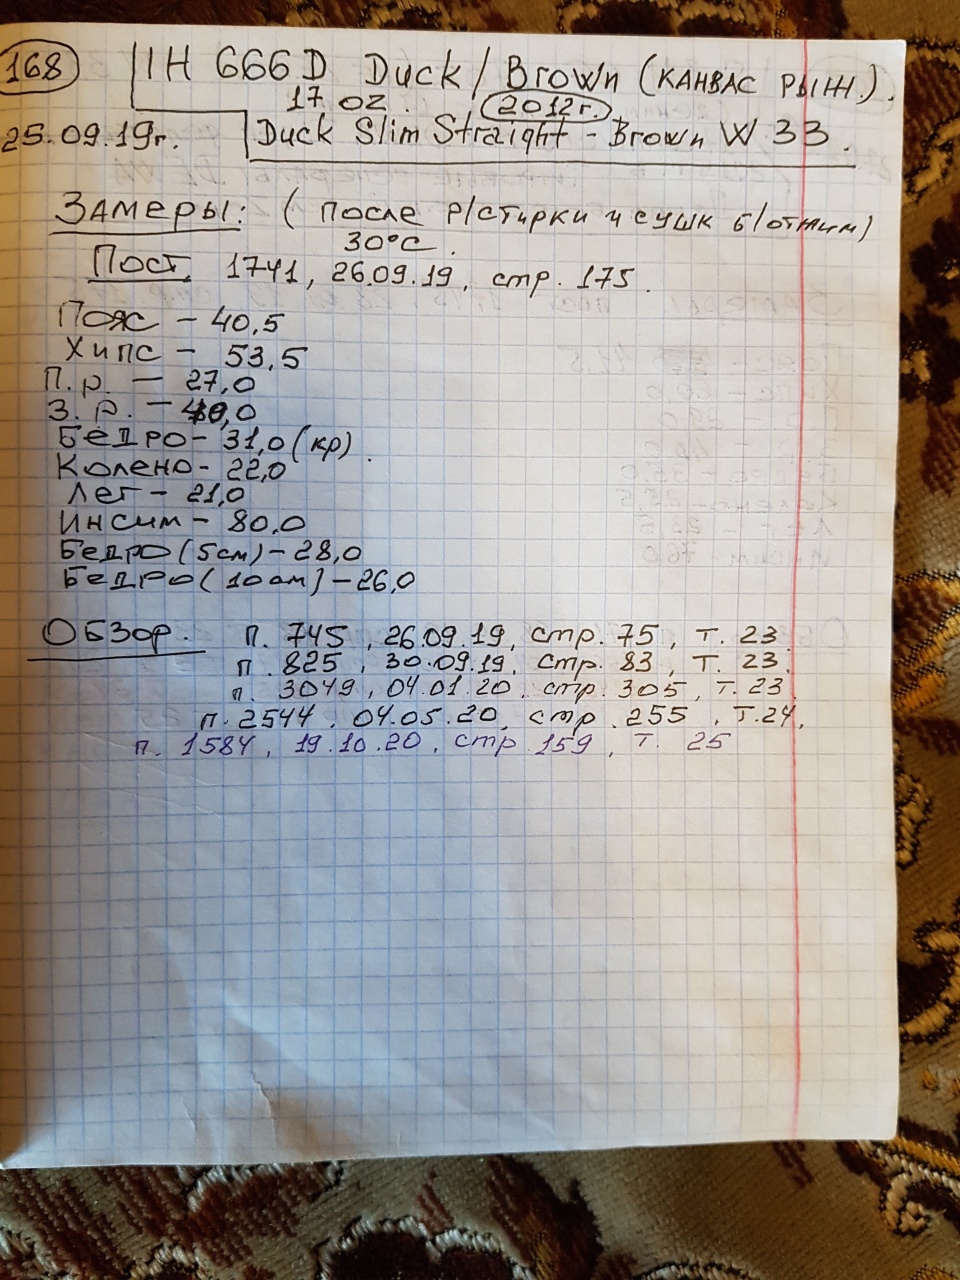 168 IH 666D Duck/Brown (КАНВАС РЫЖ).
17 oz. 2012г.
25.09.19г. Duck Slim Straight - Brown W 33.
Замеры: (после р/стирки и сушк б/отжим)
30°C.
Пост 1741, 26.09.19, стр. 175.
Пояс - 40,5
Хипс - 53,5
П.р. - 27,0
З.р. - 40,0
Бедро - 31,0 (кр).
Колено - 22,0
Лег - 21,0
Инсим - 80,0
Бедро (5см) - 28,0
Бедро (10см) - 26,0
Обзор. п. 745, 26.09.19, стр. 75, т. 23
п. 825, 30.09.19, стр. 83, т. 23
п. 3049, 04.01.20, стр. 305, т. 23
п. 2544, 04.05.20, стр. 255, т. 24,
п. 1584, 19.10.20, стр 159, т. 25